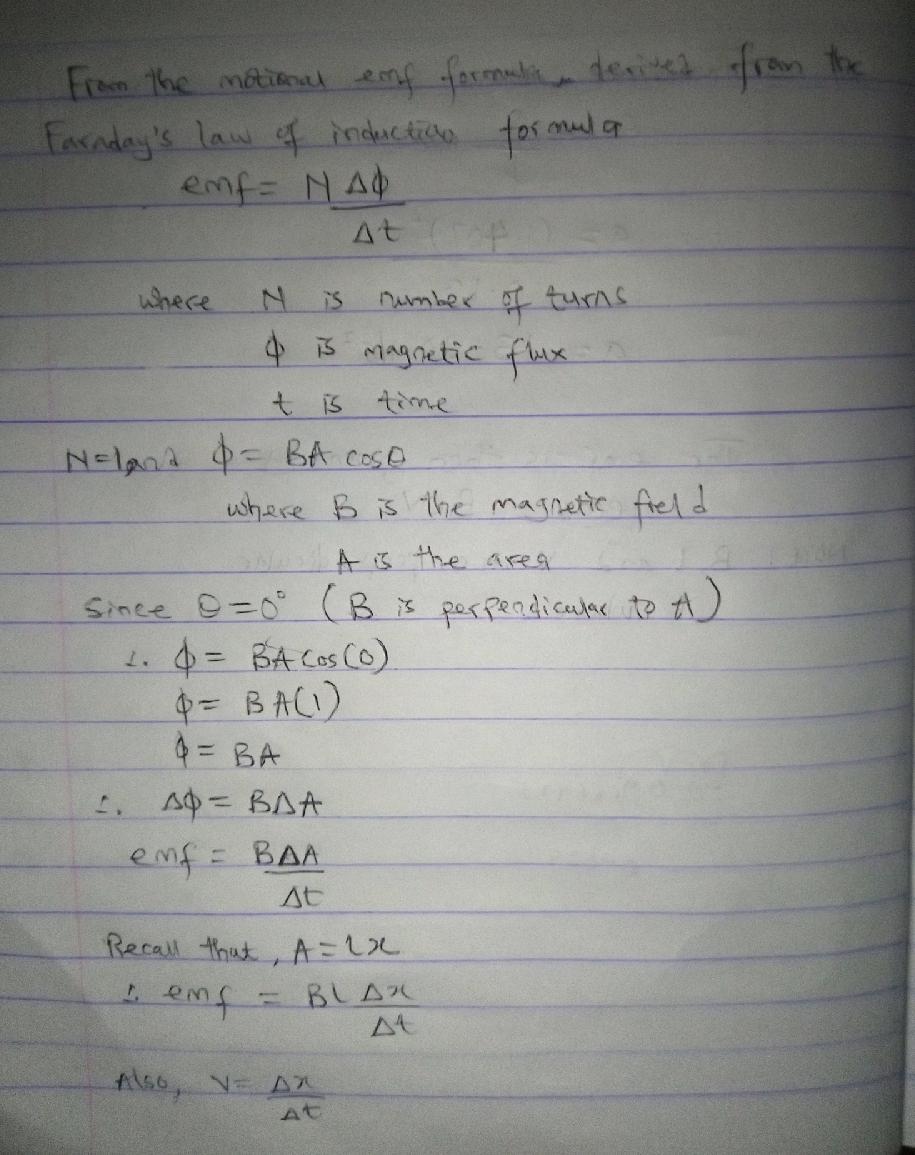 From the motional emf formula derived from the
Faraday's law of induction formula
emf = NΔϕ
Δt
where N is number of turns
ϕ is magnetic flux
t is time
N=1 and ϕ = BA cosθ
where B is the magnetic field
A is the area
Since θ=0° (B is perpendicular to A)
∴ ϕ = BA cos(0)
ϕ = BA(1)
ϕ = BA
∴ Δϕ = BΔA
emf = BΔA
Δt
Recall that, A = lx
∴ emf = Bl Δx
Δt
Also, V = Δx
Δt